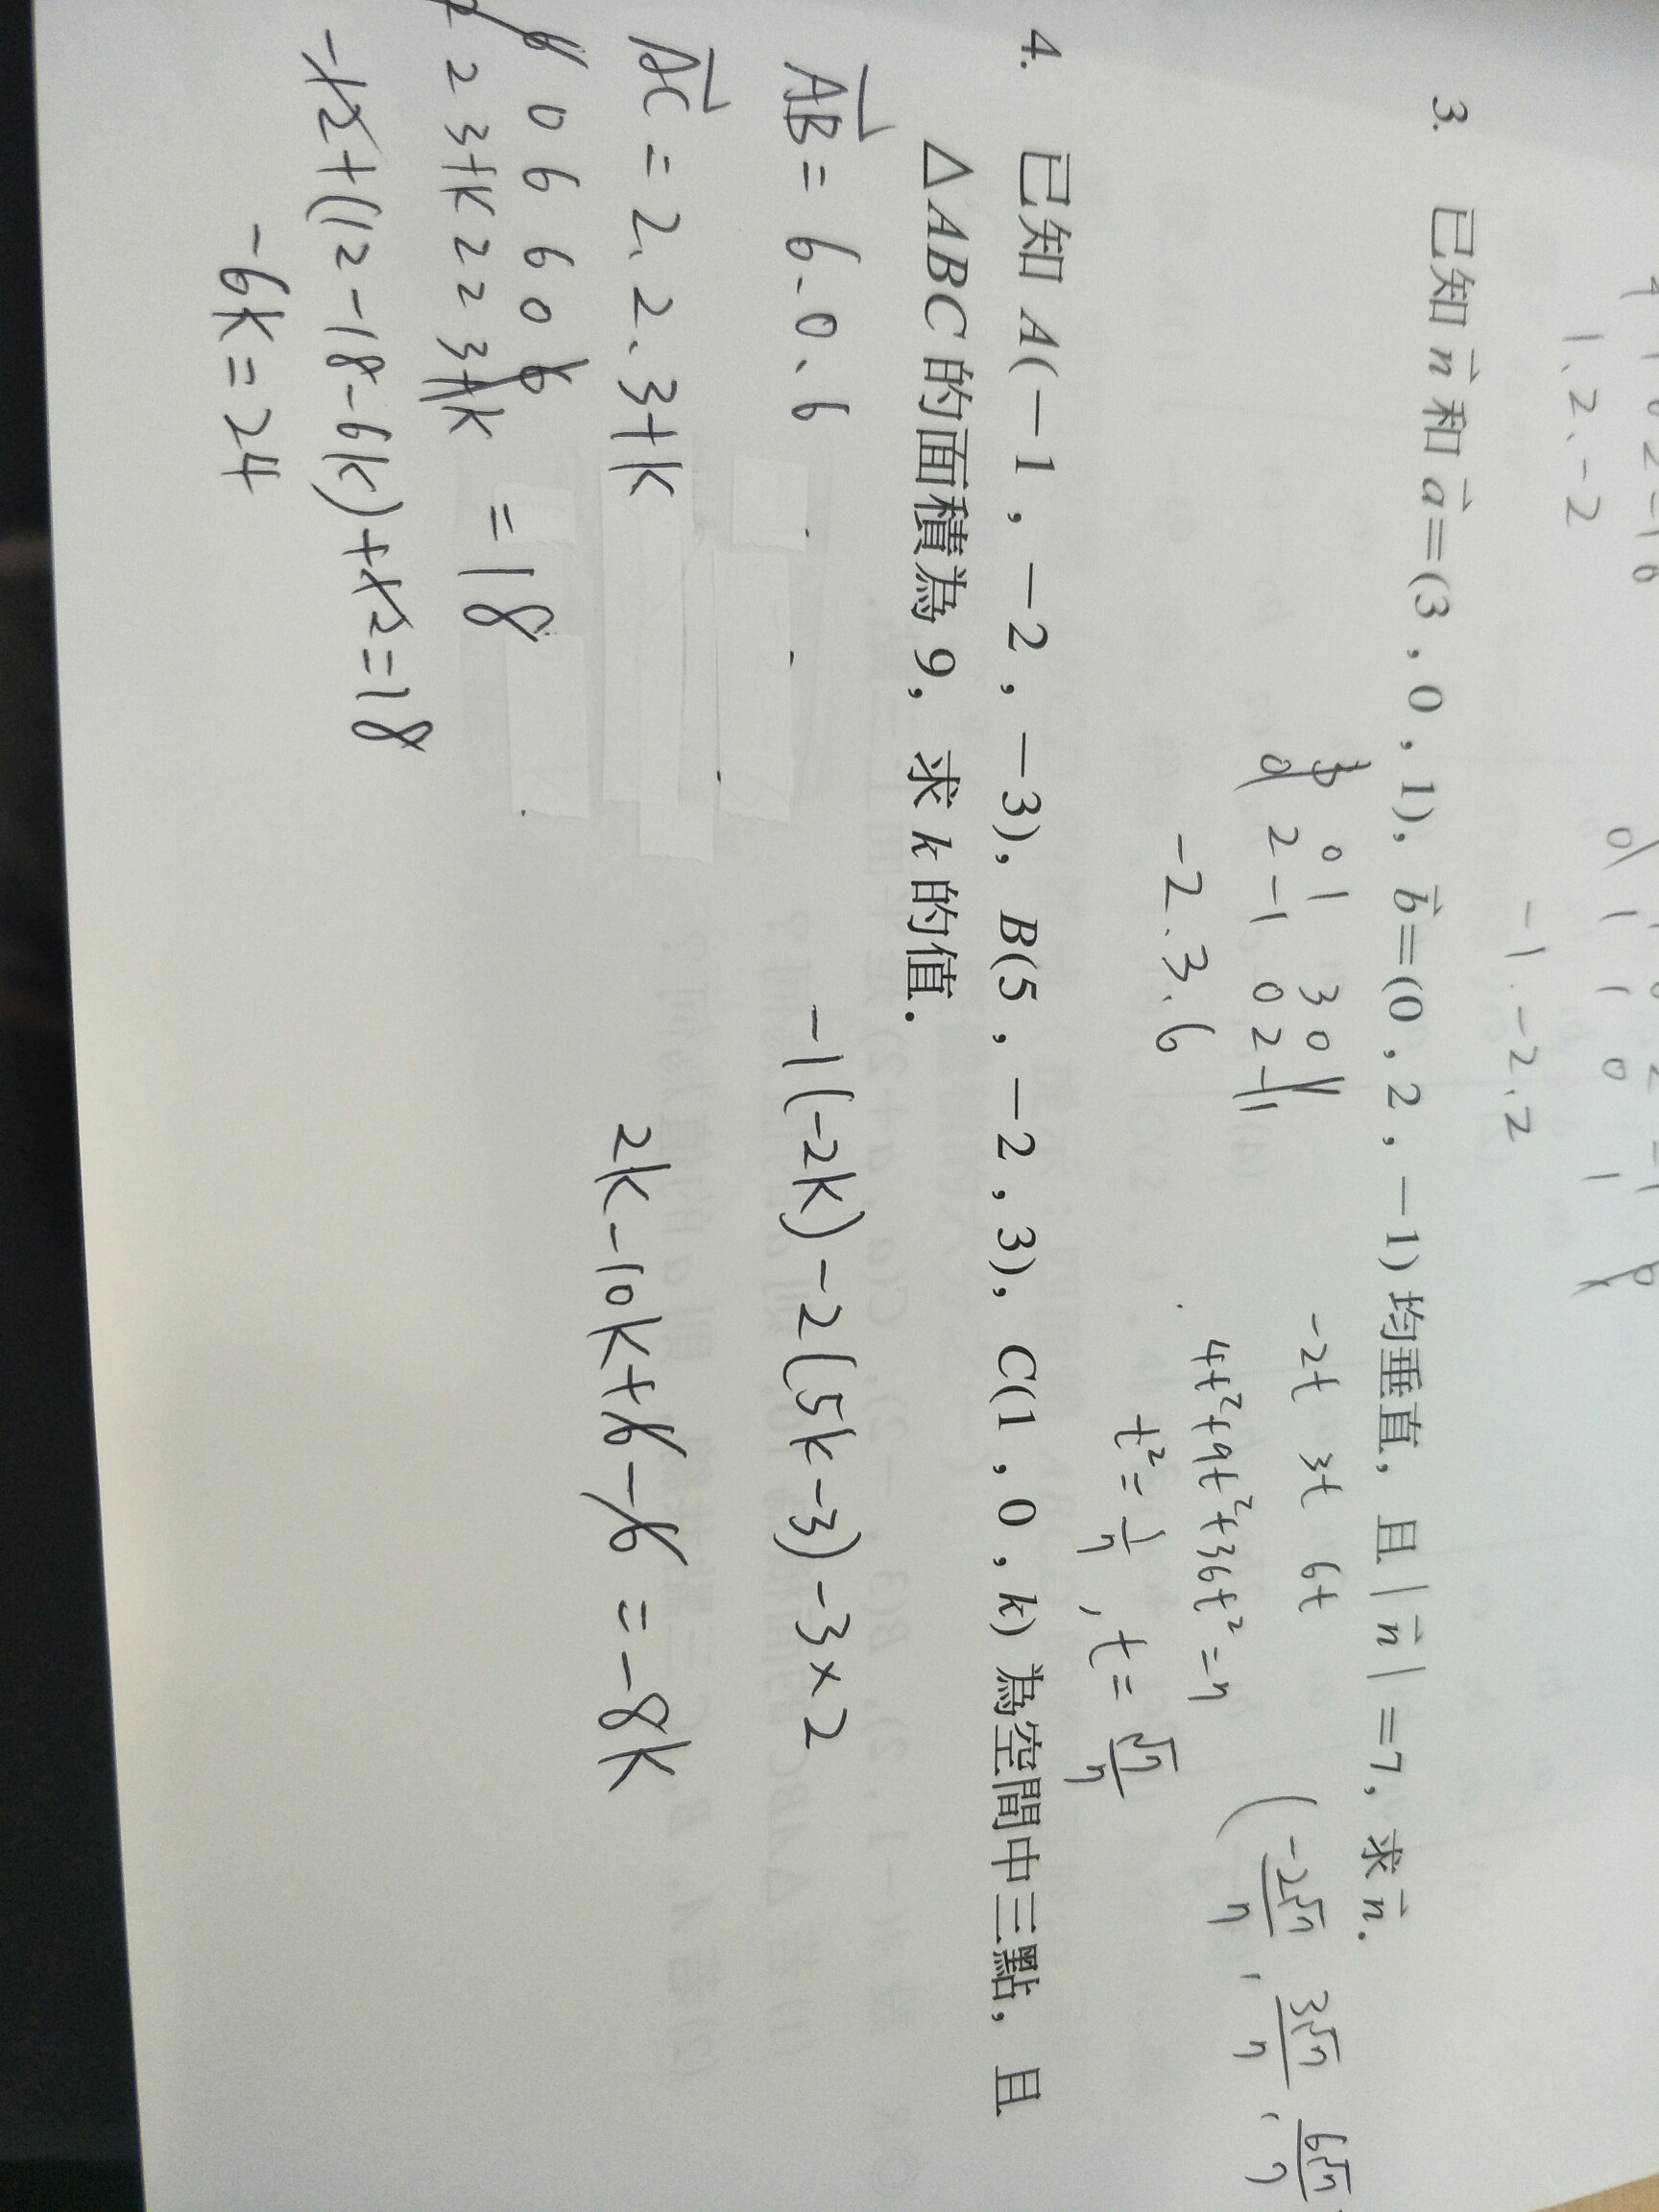 1、2、-2
-1、-2、2
3. 已知 n⃗ 和 a⃗=(3，0，1)，b⃗=(0，2，-1) 均垂直，且 |n⃗|=7，求 n⃗．
3 0 1 3 0 1
0 2 -1 0 2 -1
-2、3、6
-2t 3t 6t
4t²+9t²+36t²=7
t²=1/7，t=√7/7
(-2√7/7，3√7/7，6√7/7
4. 已知 A(-1，-2，-3)，B(5，-2，3)，C(1，0，k) 為空間中三點，且
△ABC 的面積為 9，求 k 的值．
AB⃗=6、0、6
AC⃗=2、2、3+k
6 0 6 6 0 6
2 2 3+k 2 2 3+k =18
-12+(12-18-6k)+12=18
-6k=24
-1(-2k)-2(5k-3)-3×2
2k-10k+6-6=-8k